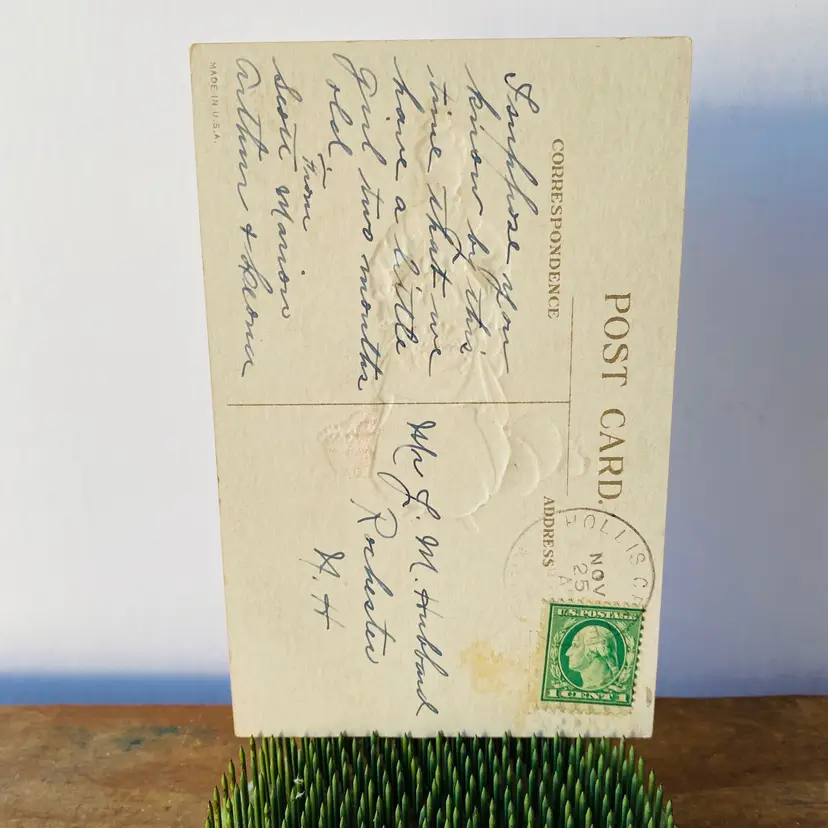 POST CARD.
CORRESPONDENCE
ADDRESS
I suppose you
know by this
time that we
have a little
girl two months
old.
From
Scott Marion
Arthur & Leona
MADE IN U.S.A.
Mr L. M. Hubbard
Rochester
N. H
HOLLIS C
NOV
25
A
U.S. POSTAGE
1 CENT 1